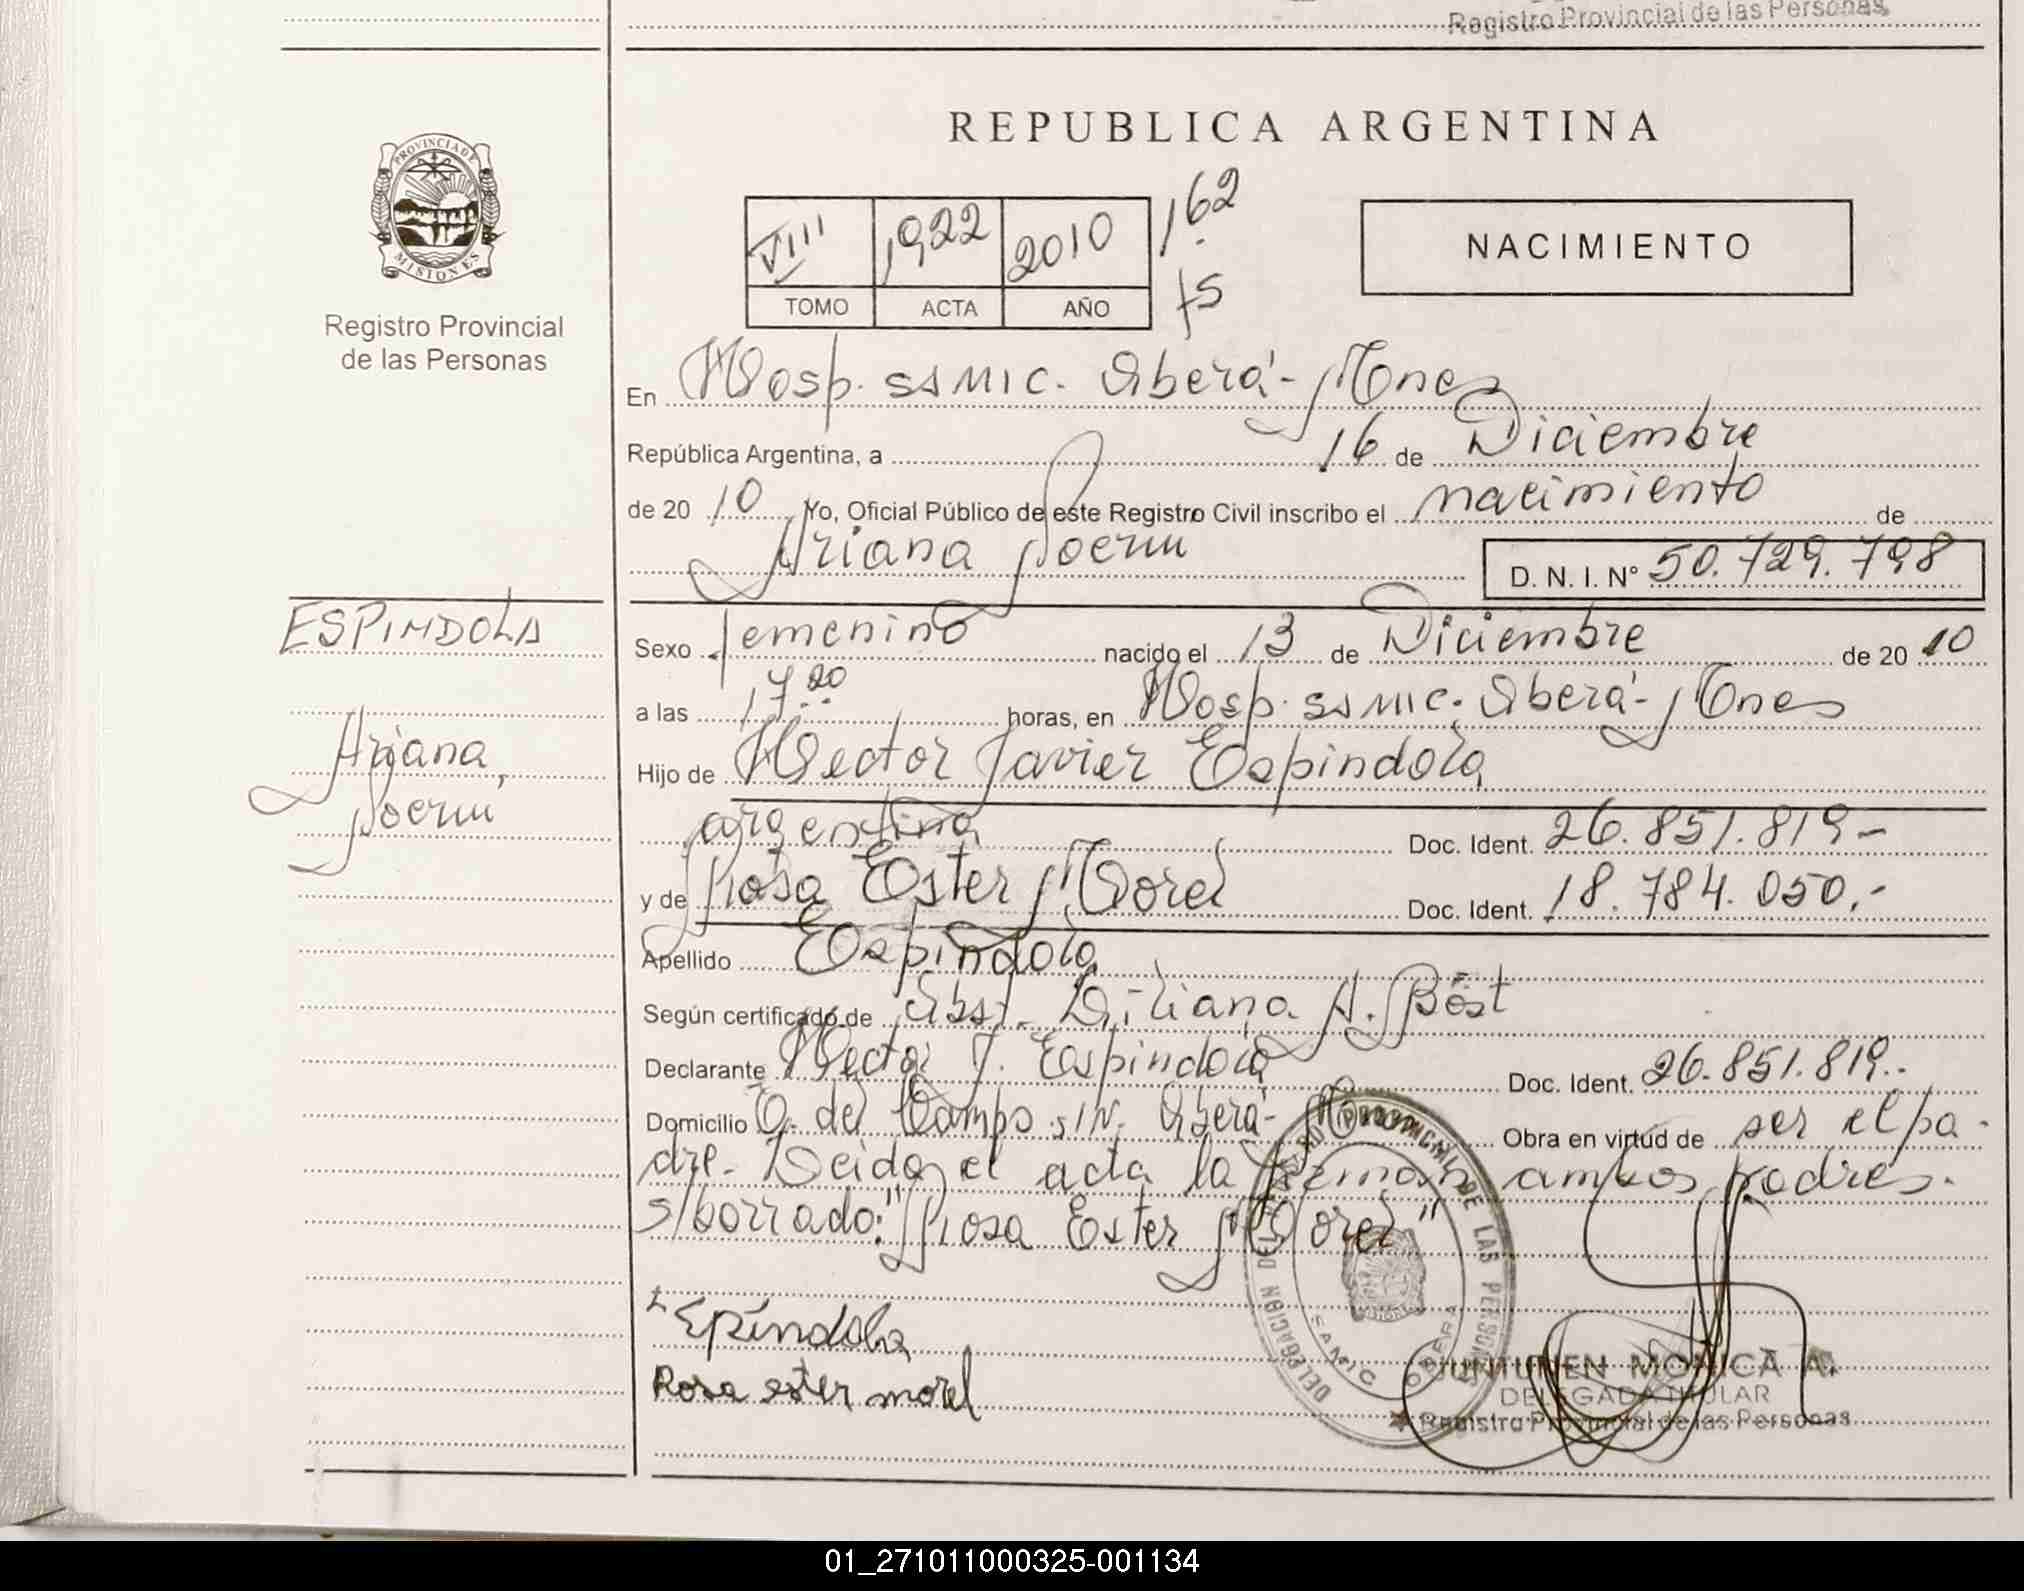 Registro Provincial de las Personas
REPUBLICA ARGENTINA
PROVINCIA DE
MISIONES
Registro Provincial
de las Personas
VIII 1922 2010 162
TOMO ACTA AÑO fs
NACIMIENTO
En Hosp. SAMIC. Oberá - Mnes
República Argentina, a 16 de Diciembre
de 20 10 Yo, Oficial Público de este Registro Civil inscribo el nacimiento de
Ariana Noemi D. N. I. Nº 50.729.798
ESPINDOLA
Ariana,
Noemi
Sexo femenino nacido el 13 de Diciembre de 20 10
a las 17.20 horas, en Hosp. SAMIC. Oberá - Mnes
Hijo de Hector Javier Espindola
argentina Doc. Ident. 26.851.819-
y de Rosa Ester Morel Doc. Ident. 18.784.050.-
Apellido Espindola
Según certificado de Obst. Liliana A. Böst
Declarante Hector J. Espindola Doc. Ident. 26.851.819.-
Domicilio O. del Campo s/N. Oberá - Obra en virtud de ser el pa-
dre. Leida el acta la firman ambos padres.
s/borrado: "Rosa Ester Morel"
Epíndola
Rosa ester morel
DELEGACION DEL REGISTRO PROVINCIAL DE LAS PERSONAS
SAMIC OBERA
JUNTUNEN MONICA A.
DELEGADA TITULAR
Registro Provincial de las Personas
01_271011000325-001134